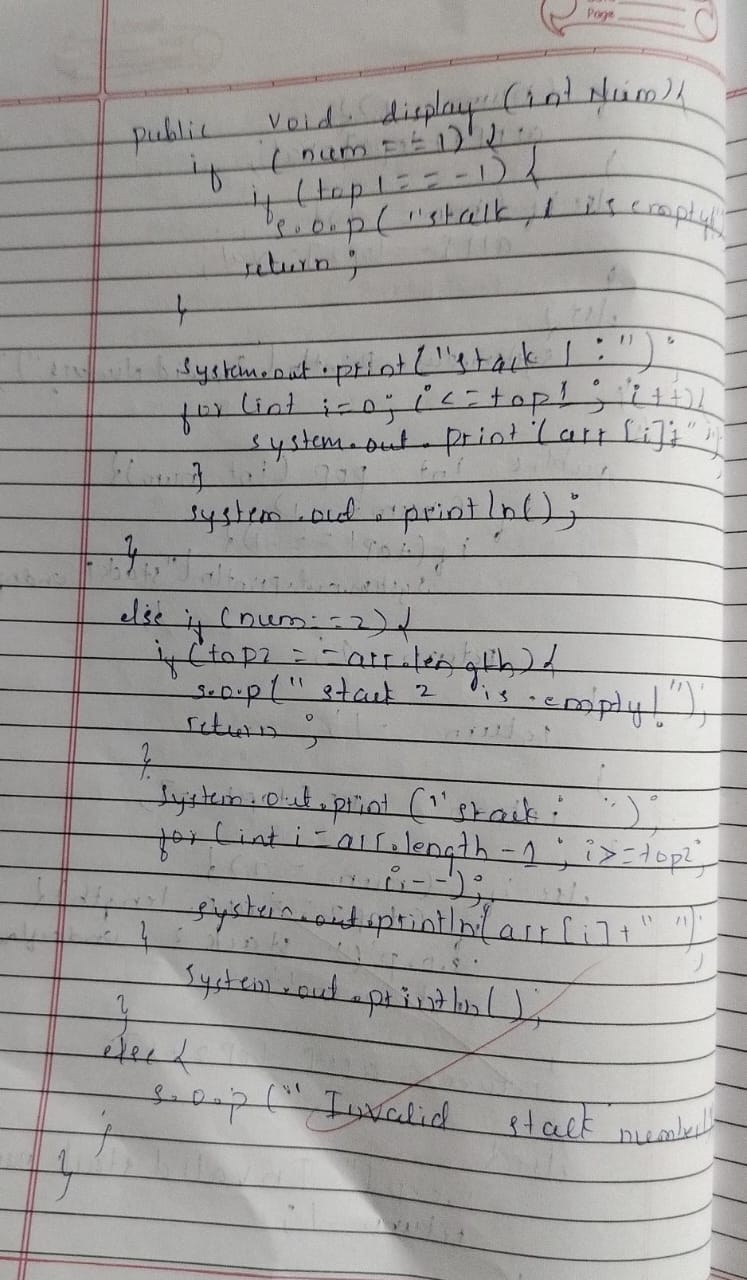 Page
public void display (int Num){
if (num == 1) {
if (top1 == -1) {
s.o.p ("stack 1 is empty!
return ;
}
System.out.print ("stack 1 : ");
for (int i=0; i<=top1 ; i++){
system.out.print (arr [i]+" ");
}
system.out.println();
}
else if (num==2) {
if (top2 == arr.length) {
s.o.p (" stack 2 is empty!");
return ;
}
System.out.print ("stack : ");
for (int i=arr.length -1 ; i>=top2;
i--);
system.out.println(arr [i]+" ");
}
System.out.println();
}
else {
s.o.p (" Invalid stack number!"
}
}